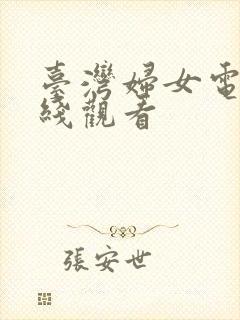 臺灣婦女電
綫觀看
張安世